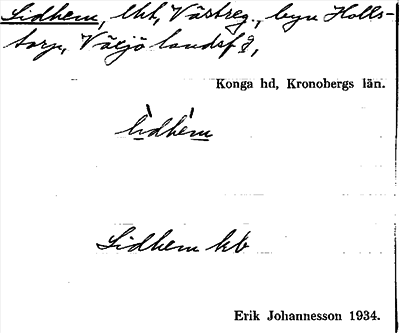 Lidhem, lht, Västreg., byn Holls-
torp, Växjö landsf g,
Konga hd, Kronobergs län.
lìdhèm
Lidhem kb
Erik Johannesson 1934.